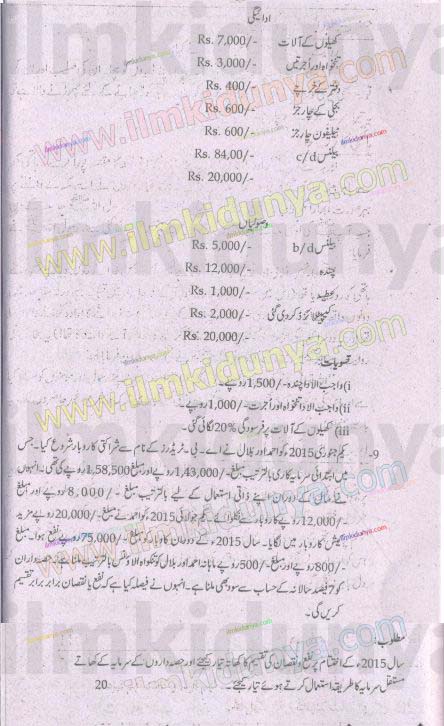 ادائیگی
کھیلوں کے آلات Rs. 7,000/-
تنخواہ اور اُجرتیں Rs. 3,000/-
دفتر کے خرچے Rs. 400/-
بجلی کے چارجز Rs. 600/-
ٹیلیفون چارجز Rs. 600/-
بیلنس c/d Rs. 84,00/-
Rs. 20,000/-
وصولیاں
بیلنس b/d Rs. 5,000/-
چندہ Rs. 12,000/-
عطیہ Rs. 1,000/-
کیپیٹلائز کر دی گئی Rs. 2,000/-
Rs. 20,000/-
تصویبات:
i) واجب الادا چندہ -/1,500 روپے۔
ii) واجب الادا تنخواہ اور اُجرت -/1,000 روپے۔
iii) کھیلوں کے آلات پر فرسودگی %20 لگائی گئی۔
9- یکم جنوری 2015ء کو احمد اور بلال نے اے۔ بی۔ ٹریڈرز کے نام سے شراکتی کاروبار شروع کیا۔ جس
میں ابتدائی سرمایہ کاری بالترتیب مبلغ -/1,43,000 روپے اور مبلغ 1,58,500 روپے کی گئی۔ انہوں
نے سال کے دوران اپنے ذاتی استعمال کے لیے بالترتیب مبلغ -/8,000 روپے اور مبلغ
-/12,000 روپے کاروبار سے نکلوائے۔ یکم جولائی 2015ء کو احمد نے مبلغ -/20,000 روپے مزید
کیش کاروبار میں لگایا۔ سال 2015ء کے دوران کاروبار کو مبلغ -/75,000 روپے نفع ہوا۔ مبلغ
-/800 روپے اور مبلغ -/500 روپے ماہانہ احمد اور بلال کو تنخواہ الاؤنس بالترتیب ملتا ہے۔ حصہ داران
کو 7 فیصد سالانہ کے حساب سے سود بھی ملتا ہے۔ انہوں نے فیصلہ کیا ہے کہ نفع یا نقصان برابر برابر تقسیم
کریں گی۔
مطلوب:
سال 2015ء کے اختتام پر نفع و نقصان کی تقسیم کا کھاتہ تیار کیجئے اور حصہ داروں کے سرمایہ کے کھاتے
مستقل سرمایہ کا طریقہ استعمال کرتے ہوئے تیار کیجئے۔ 20
www.ilmkidunya.com